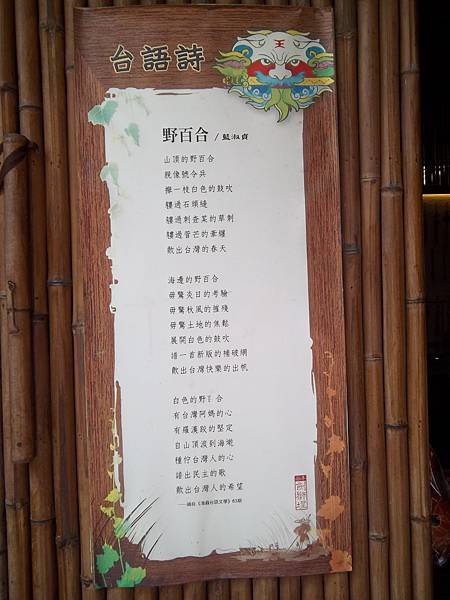 台語詩
王
野百合 / 藍淑貞
山頂的野百合
親像號令兵
攑一枝白色的鼓吹
軁過石頭縫
軁過刺查某的草刺
軁過菅芒的牽纏
歕出台灣的春天
海邊的野百合
毋驚炎日的考驗
毋驚秋風的摧殘
毋驚土地的焦鬆
展開白色的鼓吹
譜一首新版的補破網
歕出台灣快樂的出帆
白色的野百合
有台灣阿媽的心
有羅漢跤的堅定
自山頂湠到海墘
種佇台灣人的心
譜出民主的歌
歕出台灣人的希望
——摘自《海翁台語文學》63期